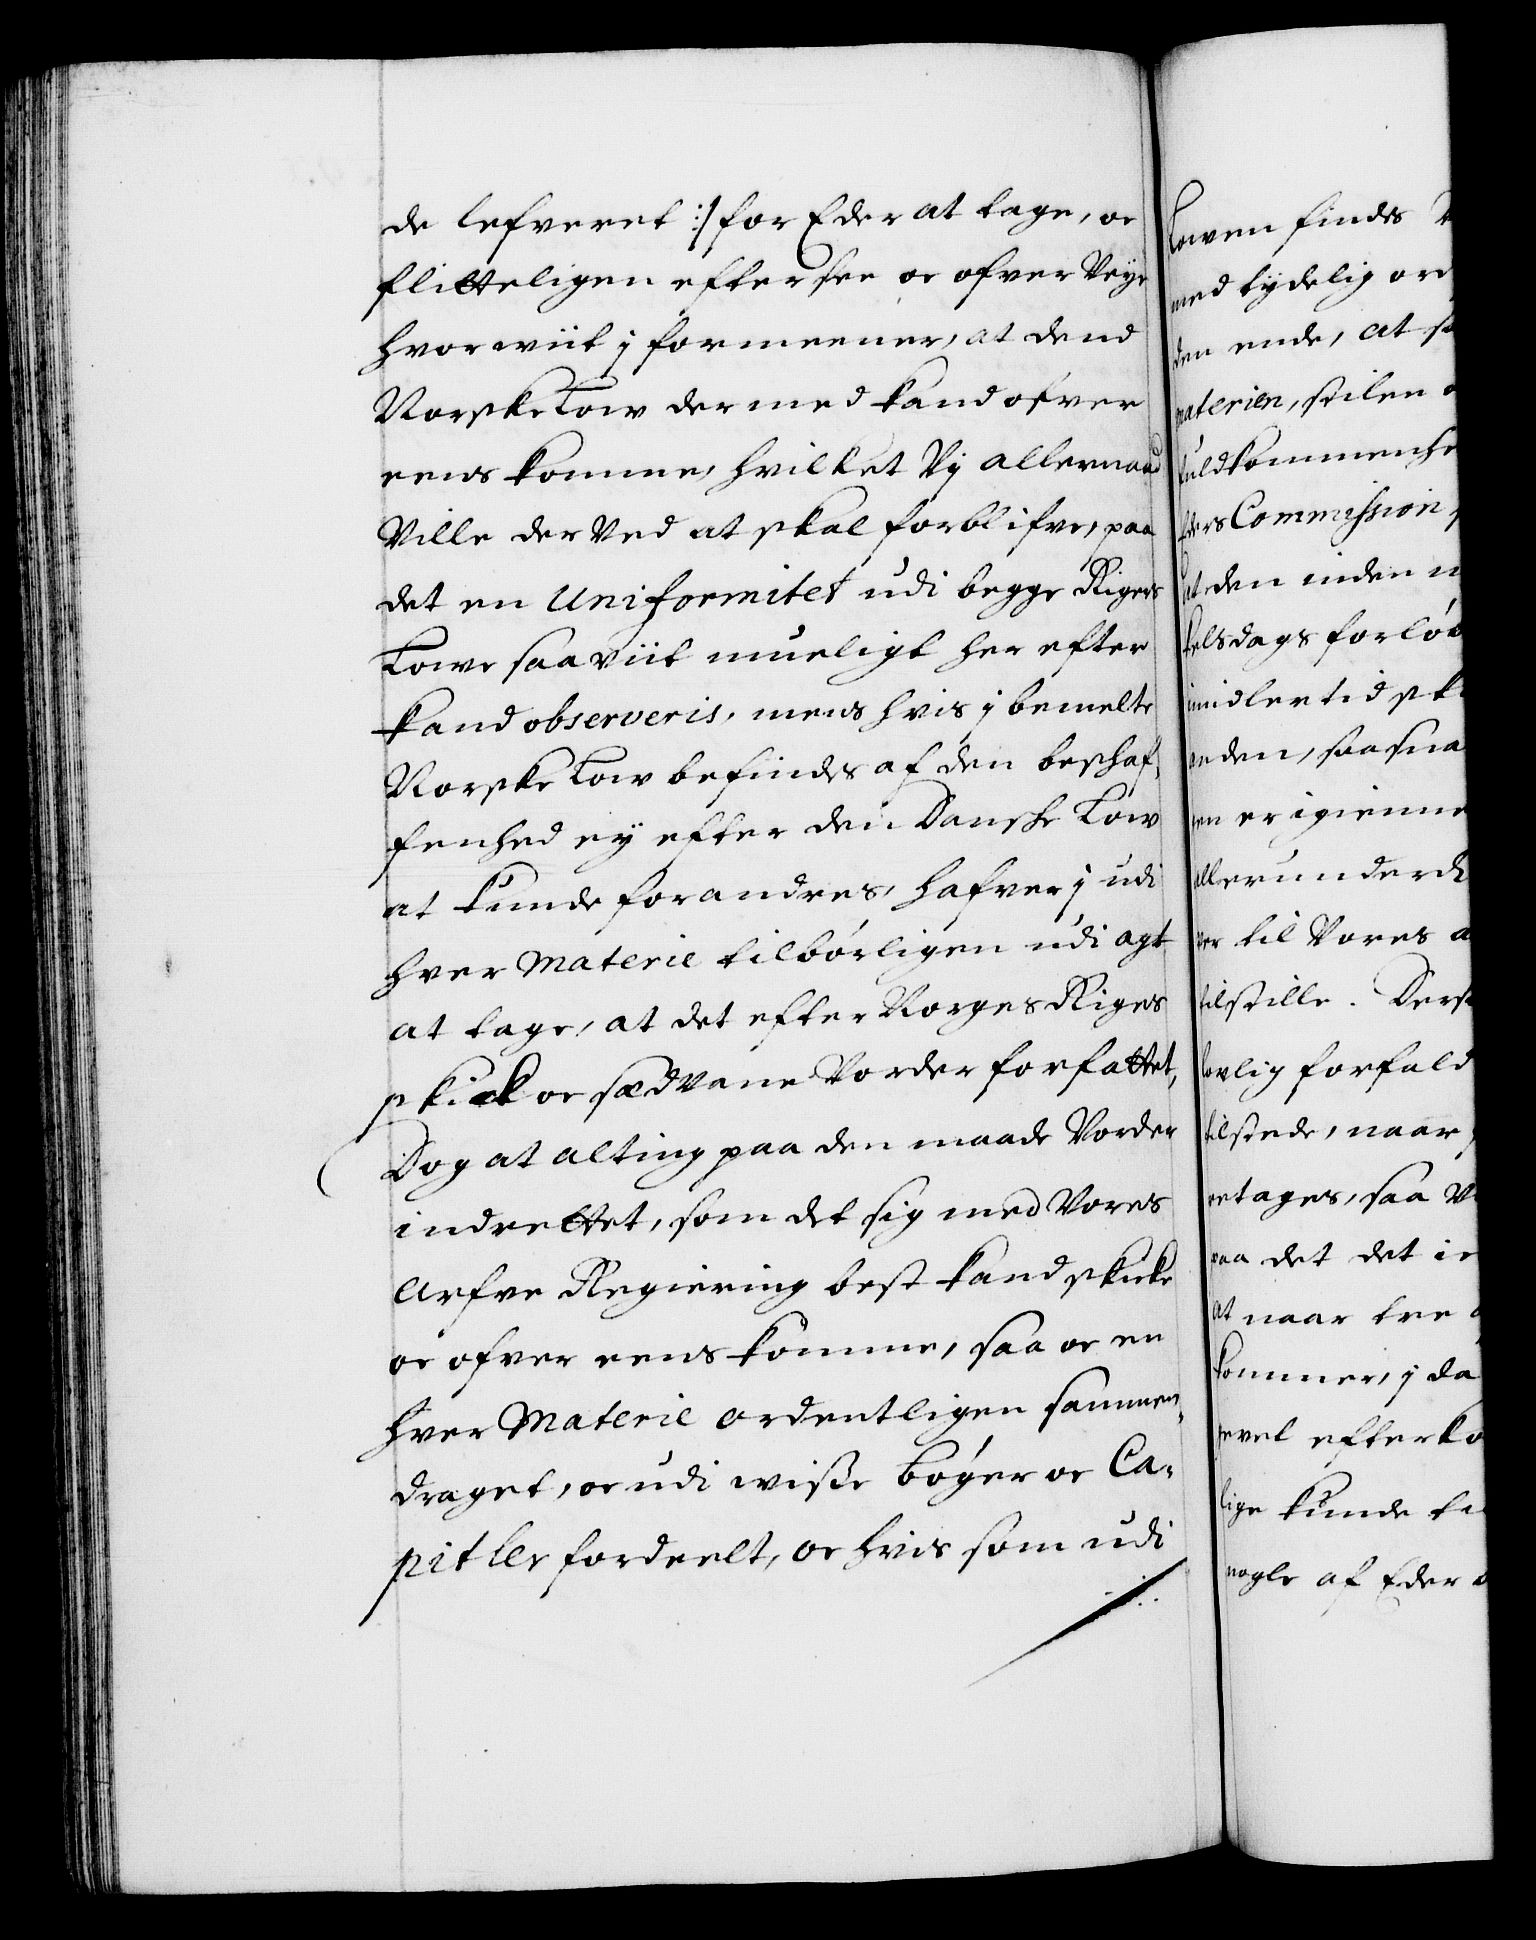 de lefveret :/ for Eder at tage, oc
flitteligen eftersee oc ofver Veye
hvorwiit j formeener, at dend
Norske Low dermed kand ofver
eens komme, hvilket Vj allernaad
Ville der Ved at skal forblifve, paa
det en Uniformitet udi begge Rigers
Lowe saaviit mueligt her efter
kand observeris, mens hvis j bemelte
Norske Low befindes af den beschaf,
fenhed ey efter den Danske Low
at kunde forandres, hafver j udi
hver Materie tilbørligen udi agt
at tage, at det efter Norges Riges
skick oc sædvane Vorder forfattet,
Dog at alting paa den maade Vorder
indrettet, som det sig med Vores
Arfve Regiering best kand skicke
oc ofver eens komme, saa oc en
hver Materie ordentligen sammen,
draget, oc udi wisse Bøger oc Ca,
pitler fordeelt, oc hvis som udi
Lowen findes
med tydelig ord
den ende, at
materien, stilen
fuldkommenhe
Eders Commission
at den inden
kelsdags forløb
imidlertid ska
en den, saasna
en er igienne
allerunderd
er til Vores a
tilstille. Ders
lovlig forfald
tilstede, naar
retages, saa
paa det det
at naar tre
kommer, j da
sevel efterko
lige kunde
nogle af Eder